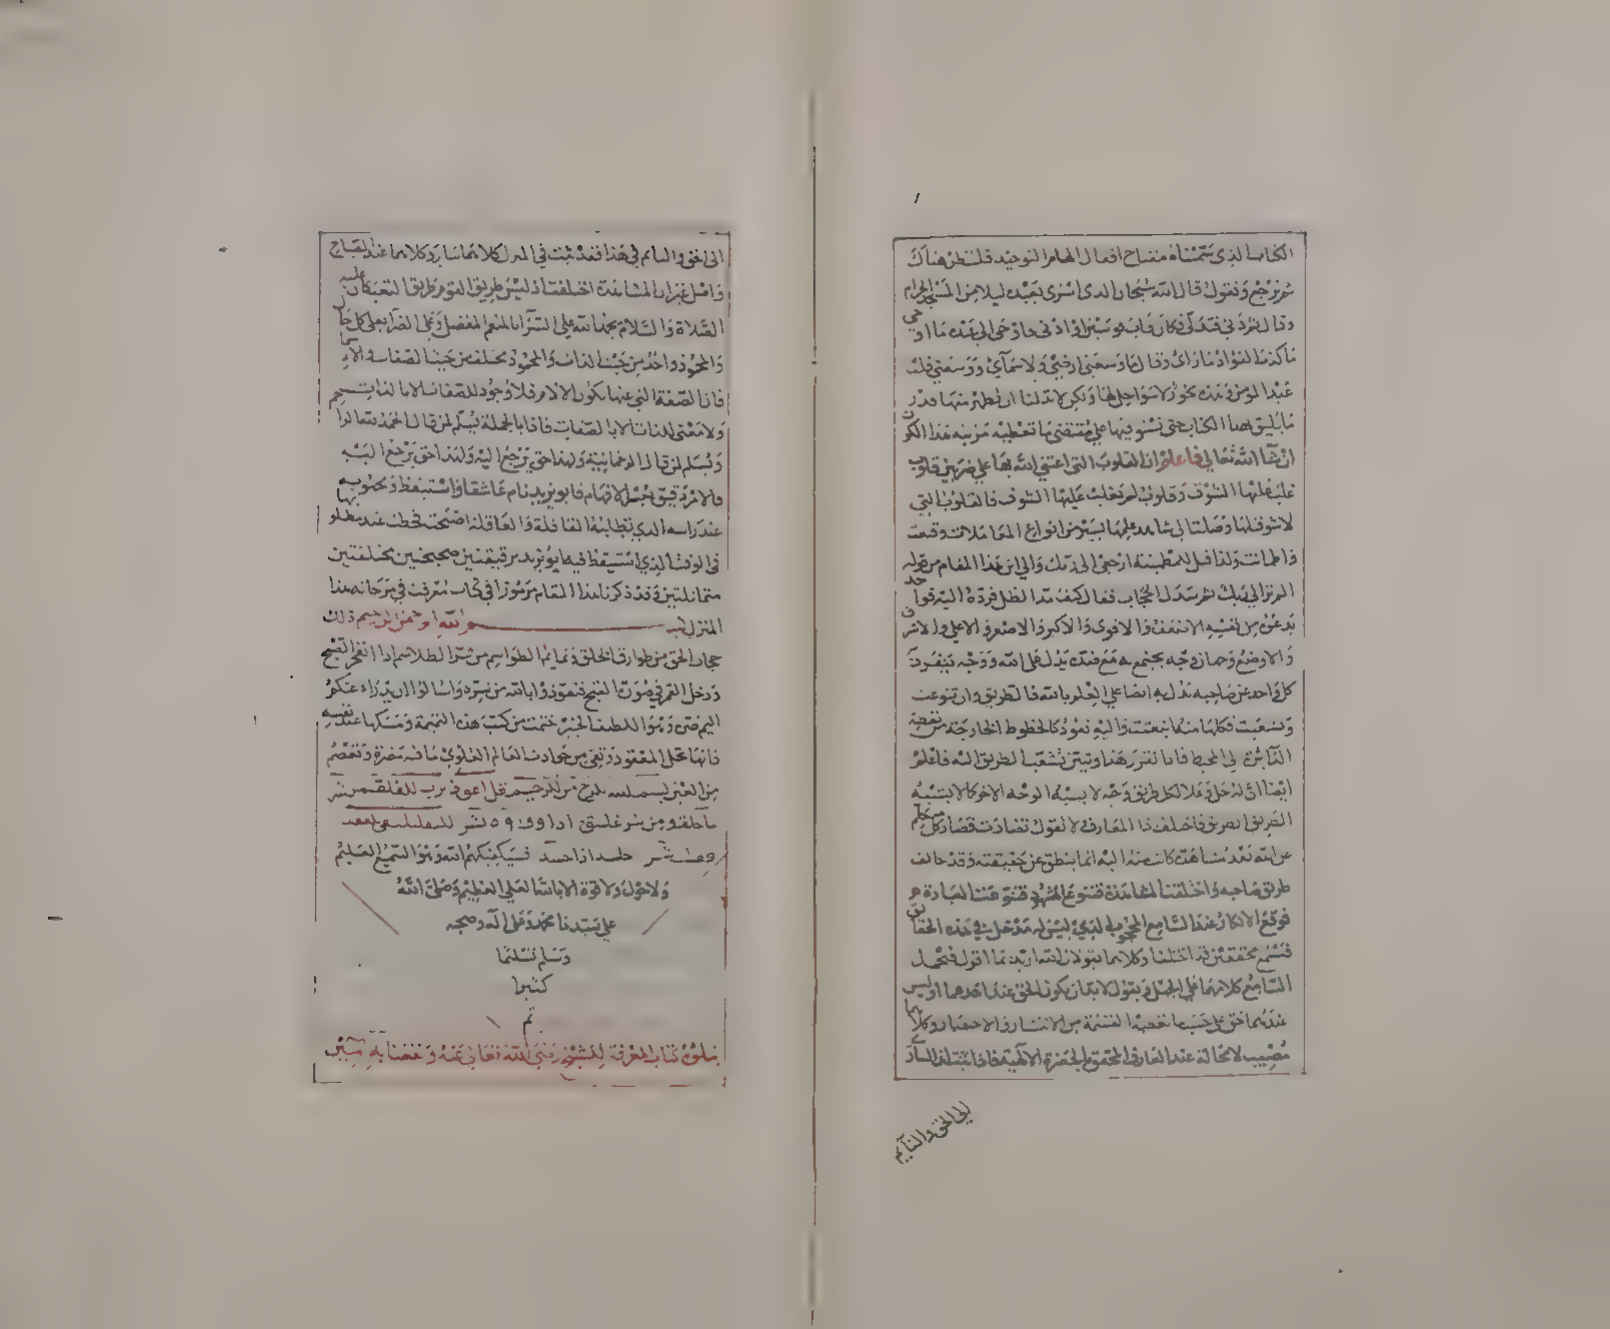 الكتاب الذي سميناه مفتاح اقفال الهام التوحيد فلينظر هناك
ثم نرجع ونقول قال الله سبحان الذي اسرى بعبده ليلا من المسجد الحرام
وقال ثم دنى فتدلى فكان قاب قوسين او ادنى فاوحى الى عبده ما اوحى
ما كذب الفؤاد ما راى وقال ما وسعني ارضي ولا سمآئي ووسعني قلب
عبدي المومن وهذه بحور لا سواحل لها ولكن لا بد لنا ان نظهر منها قدر
ما يليق بهذا الكتاب حتى نستوفيها على مقتضى ما تعطيه مرتبة هذا الكون
ان شآ الله تعالى فاعلم ان القلوب التي اعتنى الله بها على ضربين قلوب
غلب عليها الشوق وقلوب لم يغلب عليها الشوق فالقلوب التي
لا شوق لها وصلت الى شاهد علمها بسير من انواع المعاملات وقعت
واطمانت ولذا قيل للمطمينة ارجعي الى ربك والى اين هذا المقام من قوله
الم تر الى ربك ثم سدل الحجاب فقال كيف مد الظل فرده اليه فواحد
يدعو من نفسه الاضعف والاقوى والاكبر والاصغر والاعلى والاشرف
والاوضع وجهاز وجه يجتمع به مع ضده يدل على الله ووجه ينفرد
كل واحد عن صاحبه يدل به ايضا على العلم بالله فالطريق وان تنوعت
وتشعبت فكلها منه انبعثت واليه تعود كالخطوط الخارجة من نقطة
الدائرة الى المحيط فاذا تقرر هذا وتبين تشعب الطريق اليه فاعلم
ايضا ان لله عز وجل لكل طريق وجه لا يشبه الوجه الاخر كما لا يشبه
الطريق الطريق فاختلفت اذا المعارف لا نقول تضادت فصار كل متكلم
عن الله بعد مشاهدة كانت منه اليه انما ينطق عن حقيقته وقد خالف
طريق صاحبه واختلفت المشاهدة فتنوع المشهود فتنوعت العبارة
فوقع الانكار عند السامع المحجوب الذي ليس له مدخل في هذه الحقايق
فسمع محققين قد اختلفا وكلاهما يقولان الله اريد بما اقول فيحمل
السامع كلامهما على الجهل ويقول لا بد ان يكون الحق عند احدهما او ليس
عندهما حق على حسب ما تعطيه القسمة من الانتشار والانحصار وكلاهما
مصيب لا محالة عند العارف المحقق بالحضرة الالهية فاذا انتقل السائر
الى الحق والنآيم
الى الحق والنايم في هذا فقد ثبت في المنزل كلاهما سايرد كلاهما عند الصباح
واصل غير ان المشاهدة اختلفت اذ ليس طريق القوم طريق التعب كان عليه
الصلاة والسلام يحمد الله على السرآ بالمنعم المفضل وعلى الضرآ بعلى كل حال
والمحمود واحد من حيث الذات والمحمود مختلف من حيث الصفات والاسما
فان الصفة التي عنها تكون الالام فلا وجود للصفات الا بالذات
ولا معنى للذات الا بالصفات فاذا بالجملة يسلم لمن قال الحمد لله تعالى
ويسلم لمن قال الرحمانية ولهذا حتى يرجع اليه ولهذا حق يرجع اليه
فالامر دقيق يجل الافهام فابو يزيد نام عاشقا واستيقظ ومحبوبه
عند راسه الذي يطلبه القافلة والغافلة اصبحت فحطت عند مطلوبها
في الوقت الذي استيقظ فيه ابو يزيد برقيقتين صحيحتين مختلفتين
متماثلتين وقد ذكرنا هذا المقام مرموزا في كتاب معرفت في ترجمانه هذا
المنزل بسم الله الرحمن الرحيم ذلك
حجاب الحق من طوارق الخلق وتمايم الطواسم من شر الطلاسم اذا انفجر الصبح
ودخل القمر في صورة الفتح فتعوذوا بالله من شره واسالوا ان يدراء عنكم
اليم ضره وهو اللطيف الخبير ختمت من كتب هذه التميمة ومسكها عند نفسه
فانها تحل المعقود وتقي من حوادث العالم العلوي ما فيه مضرة وتعصم
من العين بسم الله الرحمن الرحيم قل اعوذ برب الفلق من شر
ما خلق ومن شر غاسق اذا وقب ومن شر النفاثات في العقد
ومن شر حاسد اذا حسد فسيكفيكهم الله وهو السميع العليم
ولا حول ولا قوة الا بالله العلي العظيم وصلى الله
على سيدنا محمد وعلى اله وصحبه
وسلم تسليما
كثيرا
تم
يتلوه كتاب المعرفة للشيخ رضي الله تعالى عنه ونفعنا به آمين